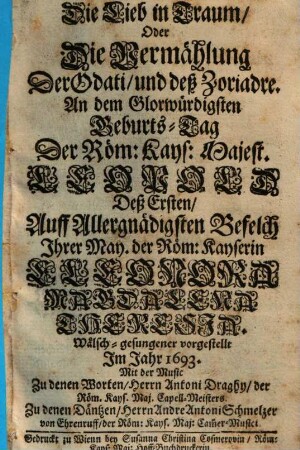 Die Lieb in Traum/
Oder
Die Vermählung
Der Odati/ und deß Zoriadre.
An dem Glorwürdigsten
Geburts-Tag
Der Röm: Kays: Majest.
LEOPOLD
Deß Ersten/
Auff Allergnädigsten Befelch
Ihrer May. der Röm: Kayserin
ELEONORA
MAGDALENA
THERESIA.
Wälsch-gesungener vorgestellt
Im Jahr 1693.
Mit der Music
Zu denen Worten/ Herrn Antoni Draghy/ der
Röm. Kays. Maj. Capell-Meisters.
Zu denen Däntzen/ Herrn Andre Antoni Schmelzer
von Ehrenruff/ der Röm: Kays. Maj: Cam̃er-Musici.
Gedruckt zu Wienn bey Susanna Christina Cosmerovin/ Röm:
Kays: Maj: Hoff-Buchdruckerin.